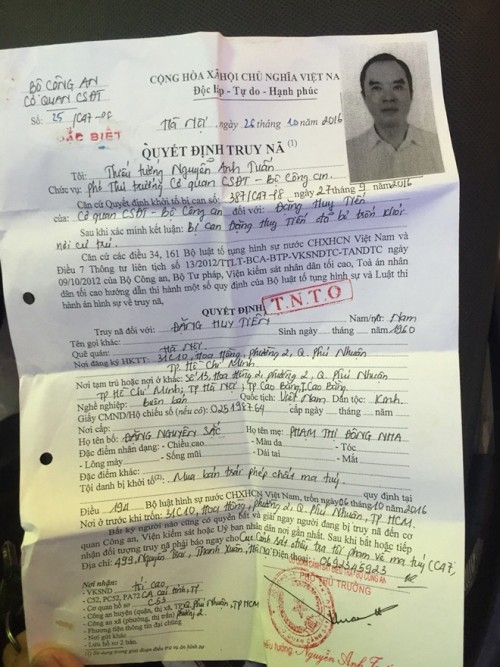 BỘ CÔNG AN
CƠ QUAN CSĐT
Số: 25 /C47-PC
ĐẶC BIỆT
CỘNG HÒA XÃ HỘI CHỦ NGHĨA VIỆT NA
Độc lập - Tự do - Hạnh phúc
Hà Nội, ngày 26 tháng 10 năm 2016
QUYẾT ĐỊNH TRUY NÃ (1)
Tôi: Thiếu tướng Nguyễn Anh Tuấn
Chức vụ: phó Thủ trưởng Cơ quan CSĐT - Bộ Công an.
Căn cứ Quyết định khởi tố bị can số: 387/C47-P8 ngày 27 tháng 9 /2016
của: Cơ quan CSĐT - Bộ Công an đối với: Đặng Huy Tiến
Sau khi xác minh kết luận: Bị can Đặng Huy Tiến đã bỏ trốn khỏi
nơi cư trú.
Căn cứ các điều 34, 161 Bộ luật tố tụng hình sự nước CHXHCN Việt Nam và
Điều 7 Thông tư liên tịch số 13/2012/TTLT-BCA-BTP-VKSNDTC-TANDTC ngày
09/10/2012 của Bộ Công an, Bộ Tư pháp, Viện kiểm sát nhân dân tối cao, Toà án nhân
dân tối cao hướng dẫn thi hành một số quy định của Bộ luật tố tụng hình sự và Luật thi
hành án hình sự về truy nã,
QUYẾT ĐỊNH
T.N.T.O
Truy nã đối với: ĐẶNG HUY TIẾN Nam/nữ: Nam
Tên gọi khác: Sinh ngày tháng năm 1960
Quê quán: Hà Nội
Nơi đăng ký HKTT: 31C10, Hoa Hồng, phường 2, Q. Phú Nhuận
TP Hồ Chí Minh
Nơi tạm trú hoặc nơi ở khác: Số 13, Hoa Hồng 2, phường 2, Q. Phú Nhuận
TP Hồ Chí Minh; TP Hà Nội, TP Cao Bằng, T. Cao Bằng.
Nghề nghiệp: buôn bán Quốc tịch: Việt Nam Dân tộc: Kinh
Giấy CMND/Hộ chiếu số (nếu có): cấp ngày tháng năm
Nơi cấp:
Họ tên bố: ĐẶNG NGUYÊN SẮC Họ tên mẹ: PHẠM THỊ ĐÔNG NHA
Đặc điểm nhân dạng: - Chiều cao - Màu da - Tóc
- Lông mày - Sống mũi - Dái tai - Mắt
Đặc điểm khác:
Tội danh bị khởi tố: Mua bán trái phép chất ma tuý quy định tại
Điều 194 Bộ luật hình sự nước CHXHCN Việt Nam, trốn ngày 06 tháng 10 /2016
Nơi ở trước khi trốn: 31C10, Hoa Hồng, phường 2, Q. Phú Nhuận, TP HCM.
Bất kỳ người nào cũng có quyền bắt và giải ngay người đang bị truy nã đến cơ
quan Công an, Viện kiểm sát hoặc Uỷ ban nhân dân nơi gần nhất. Sau khi bắt hoặc tiếp
nhận đối tượng truy nã phải báo ngay cho Cục Cảnh sát điều tra tội phạm về ma tuý (C47,
Địa chỉ: 499, Nguyễn Trãi, Thanh Xuân, Hà Nội Điện thoại: 0692345923
Nơi nhận:
- VKSND tối cao
- C52, PC52, PA72 CA các tỉnh, TP
- Cơ quan hồ sơ C53
- Công an huyện (quận, thị xã, TP) Q. Phú Nhuận, TP HCM
- Công an xã (phường, thị trấn) phường 2.
- Phương tiện thông tin đại chúng
- Nơi gửi khác
- Lưu hồ sơ 2 bản.
PHÓ THỦ TRƯỞNG
tướng Nguyễn Anh